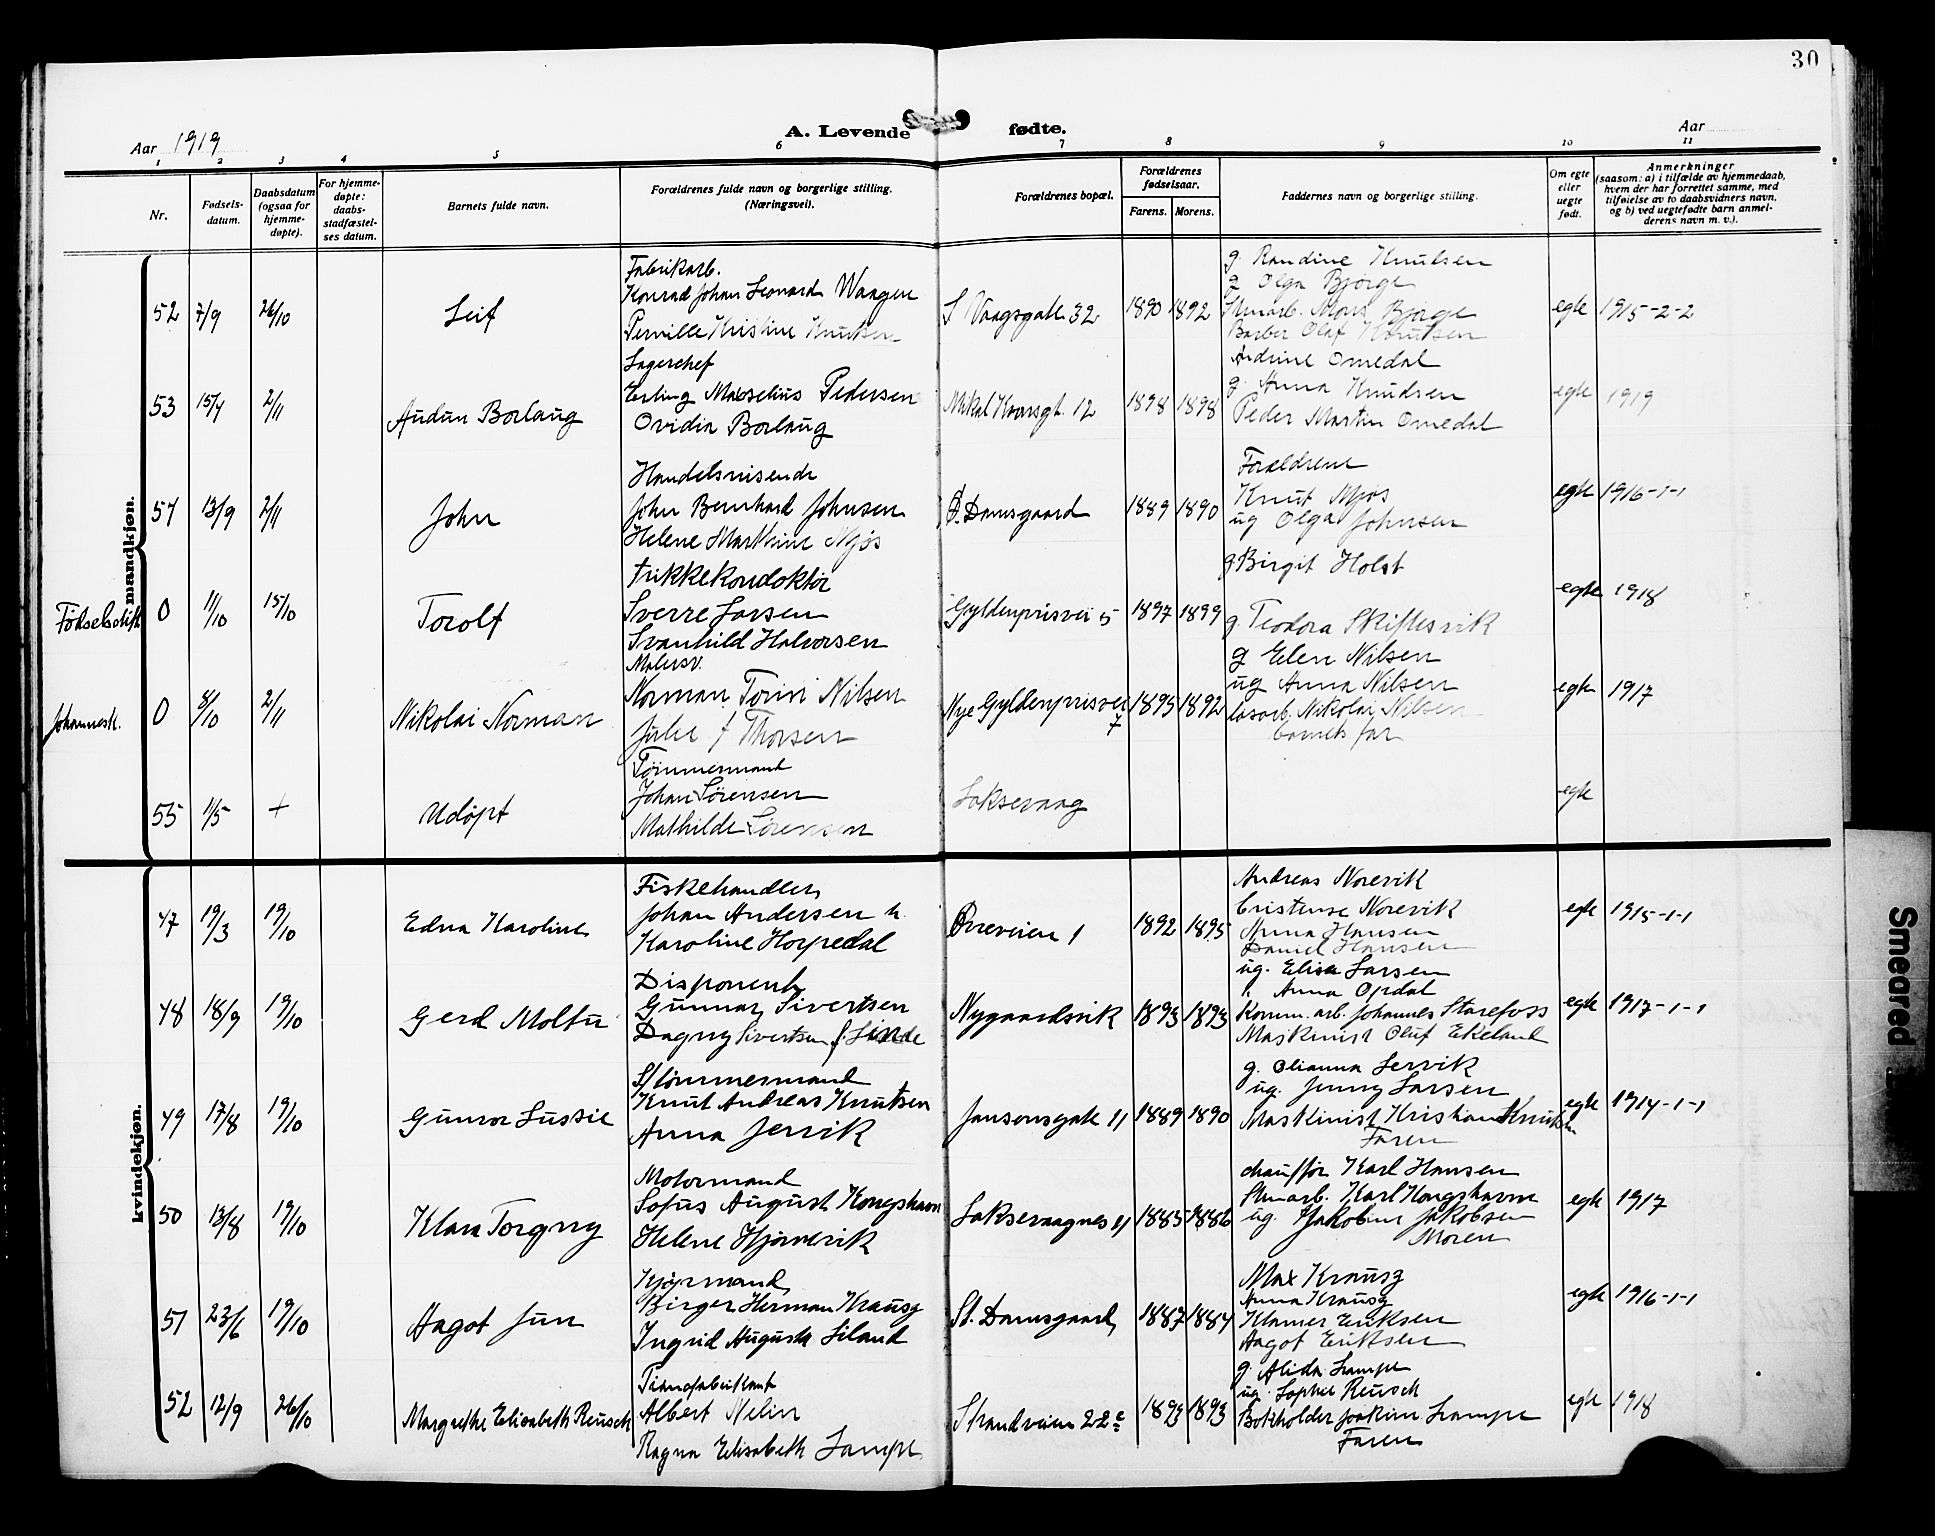 30
Aar 1919
A. Levende fødte.
Aar
1 2 3 4 5 6 7 8 9 10 11
Nr.
Fødsels-
datum.
Daabsdatum
(ogsaa for
hjemme-
døpte).
For hjemme-
døpte:
daabs-
stadfæstel-
ses datum.
Barnets fulde navn.
Forældrenes fulde navn og borgerlige stilling.
(Næringsvei).
Forældrenes bopæl.
Forældrenes
fødselsaar.
Farens. Morens.
Faddernes navn og borgerlige stilling.
Om egte
eller
uegte
født.
Anmerkninger
(saasom: a) i tilfælde av hjemmedaab,
hvem der har forrettet samme, med
tilføielse av to daabsvidners navn,
og b) ved uegtefødte barn anmel-
derens navn m. v.).
mandkjøn.
52 7/9 26/10 Leif
Fabrikarb.
Konrad Johan Leonard Waagen
Pernille Kristine Knutsen
S Vaagsgate 32 1890 1892
g. Randine Knutsen
g Olga Bjørge
Stuarb. Mons Bjørge
Barber Olaf Knutsen
egte 1915-2-2
53 15/4 2/11 Audun Borlaug
Lagerchef
Erling Marselius Pedersen
Ovidia Borlaug
Mikal Kronsgt. 12 1898 1898
Andrine Omedal
g. Anna Knudsen
Peder Martin Omedal
egte 1919
54 13/9 2/11 John
Handelsreisende
John Bernhard Johnsen
Helene Marthine Mjøs
St. Damsgaard 1889 1890
Forældrene
Knut Mjøs
ug Olga Johnsen
egte 1916-1-1
Fødselsstift 0 11/10 15/10 Torolf
Trikkekonduktør
Sverre Larsen
Svanhild Halvorsen
Gyldenprisvei 5 1897 1899
g Birgit Holst
g. Teodora Skiftesvik
g Elen Nilsen
egte 1918
Johannesk. 0 8/10 2/11 Nikolai Norman
Malersv.
Norman Torin Nilsen
Julie f Thorsen
Nye Gyldenprisvei
7
1895 1892
ug Anna Nilsen
løsarb. Nikolai Nilsen
barnets far
egte 1917
55 1/5 + Udøpt
Tømmermand
Johan Sørensen
Mathilde Sørensen
Laksevaag
egte
kvindekjøn.
47 19/3 19/10 Edna Karoline
Fiskehandler
Johan Andersen h.
Karoline Hopedal
Øvreveien 1 1892 1895
Andreas Norevik
Cristense Norevik
Anna Hansen
Daniel Hansen
egte 1915-1-1
48 18/9 19/10 Gerd Moltu
Disponent
Gunnar Sivertsen
Dagny Sivertsen f. Linde
Nygaardsvik 1893 1893
ug. Elisa Larsen
Anna Opdal
Komm. arb. Johannes Starefoss
Maskinist Oluf Ekeland
egte 1917-1-1
49 17/8 19/10 Gunvor Lussie
S/tømmermand
Knut Andreas Knutsen
Anna Jervik
Jansonsgate 11 1889 1890
g. Olianna Jervik
ug. Jenny Larsen
Maskinist Kristian Knutsen
Faren
egte 1914-1-1
50 13/8 19/10 Klara Torgny
Motormand
Sofus August Kongshavn
Helene Hjørnevik
Laksevaagnes 11 1885 1886
chauffør Karl Hansen
Stuarb. Karl Kongshavn
ug. Jakobine Jakobsen
Moren
egte 1917
51 23/6 19/10 Aagot Jun
Kjørmand
Birger Herman Krausz
Ingrid Augusta Siland
St. Damsgaard 1887 1884
Max Krausz
Anna Krausz
Klamer Eriksen
Aagot Eriksen
egte 1916-1-1
52 12/9 26/10 Margrethe Elisabeth Reusch
Pianofabrikant
Albert Nelin
Ragna Elisabeth Lampe
Strandveien 22c 1893 1893
g. Alida Lampe
ug. Sophie Reusch
Bokholder Joakim Lampe
Faren
egte 1918
Smeared